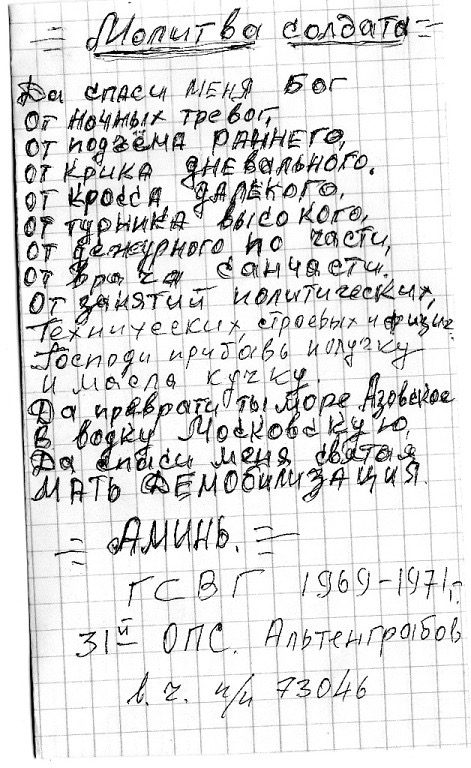 = Молитва солдата =
Да спаси меня Бог
От ночных тревог,
От подъёма раннего,
От крика дневального.
От кросса далёкого,
От турника высокого,
От дежурного по части,
От врача санчасти.
От занятий политических,
Технических, строевых и физич.
Господи прибавь получку
и масла кучку.
Да преврати ты море Азовское
В водку Московскую,
Да спаси меня святая
МАТЬ ДЕМОБИЛИЗАЦИЯ.
= АМИНЬ. =
ГСВГ 1969-1971г.
31й ОПС. Альтенграбов
в.ч. п/п 73046